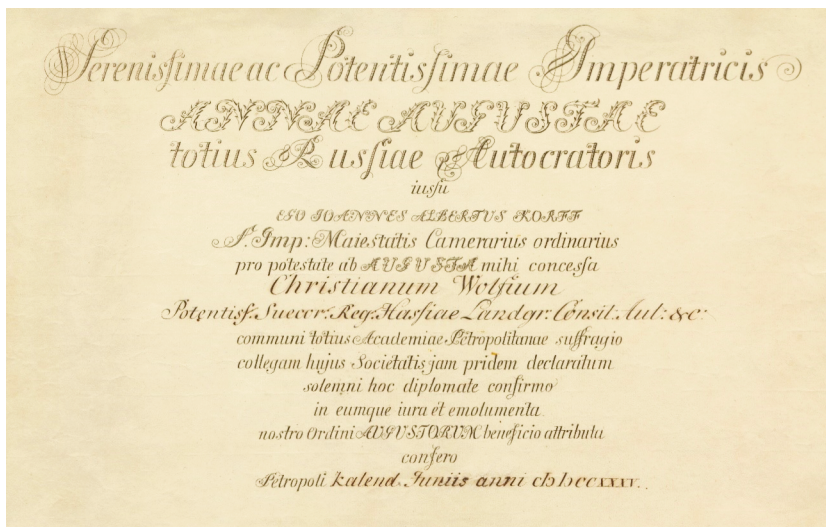 Serenissimae ac Potentissimae Imperatricis
ANNAE AUGUSTAE
totius Russiae Autocratoris
iussu
EGO IOANNES ALBERTUS KORFF
S. Imp: Maiestatis Camerarius ordinarius
pro potestate ab AUGUSTA mihi concessa
Christianum Wolfium
Potentiss. Suecor. Reg. Hassiae Landgr. Consil. Aul: &c:
communi totius Academiae Petropolitanae suffragio
collegam hujus Societatis jam pridem declaratum
solemni hoc diplomate confirmo
in eumque iura et emolumenta
nostro Ordini AUGUSTORUM beneficio attributa
confero
Petropoli kalend. Juniis anni cIɔ Iɔcc xxxv.